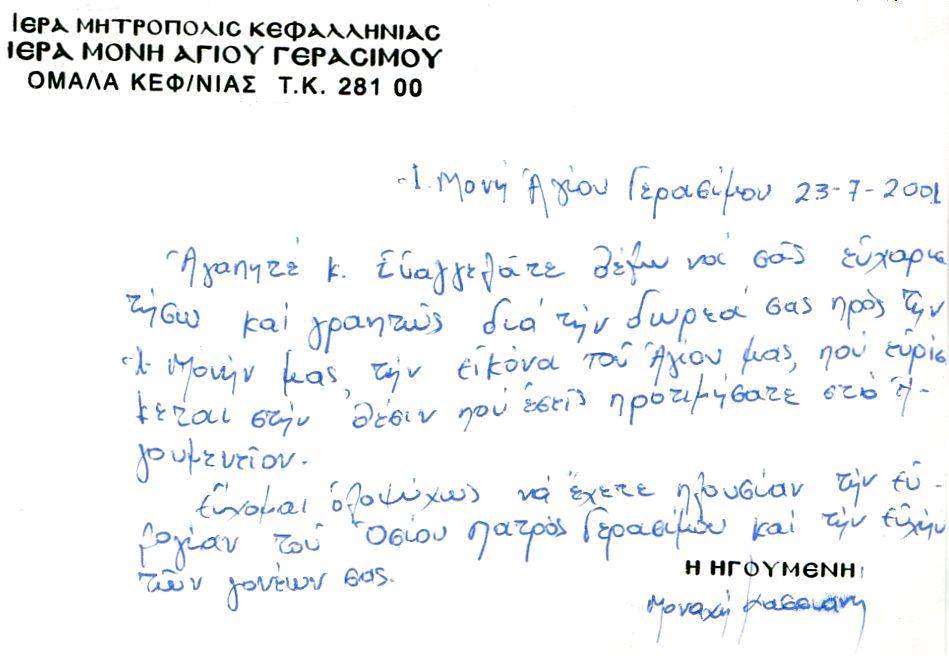 ΙΕΡΑ ΜΗΤΡΟΠΟΛΙΣ ΚΕΦΑΛΛΗΝΙΑΣ
ΙΕΡΑ ΜΟΝΗ ΑΓΙΟΥ ΓΕΡΑΣΙΜΟΥ
ΟΜΑΛΑ ΚΕΦ/ΝΙΑΣ Τ.Κ. 281 00
Ἱ. Μονή Ἁγίου Γερασίμου 23-7-2001
Ἀγαπητέ κ. Εὐαγγελάτε θέλω νά σᾶς εὐχαρισ
τήσω καί γραπτῶς διά τήν δωρεά σας πρὸς τήν
Ἱ. Μονήν μας, τήν εἰκόνα τοῦ Ἁγίου μας, πού εὑρίσ
κεται στήν θέσιν πού ἐσεῖς προτιμήσατε στό ἡ-
γουμενεῖον.
Εὔχομαι ὁλοψύχως νά ἔχετε πλουσίαν τήν εὐ-
λογίαν τοῦ Ὁσίου Πατρὸς Γερασίμου καί τήν εὐχήν
τῶν γονέων σας.
Η ΗΓΟΥΜΕΝΗ
Μοναχή Κασσιανή